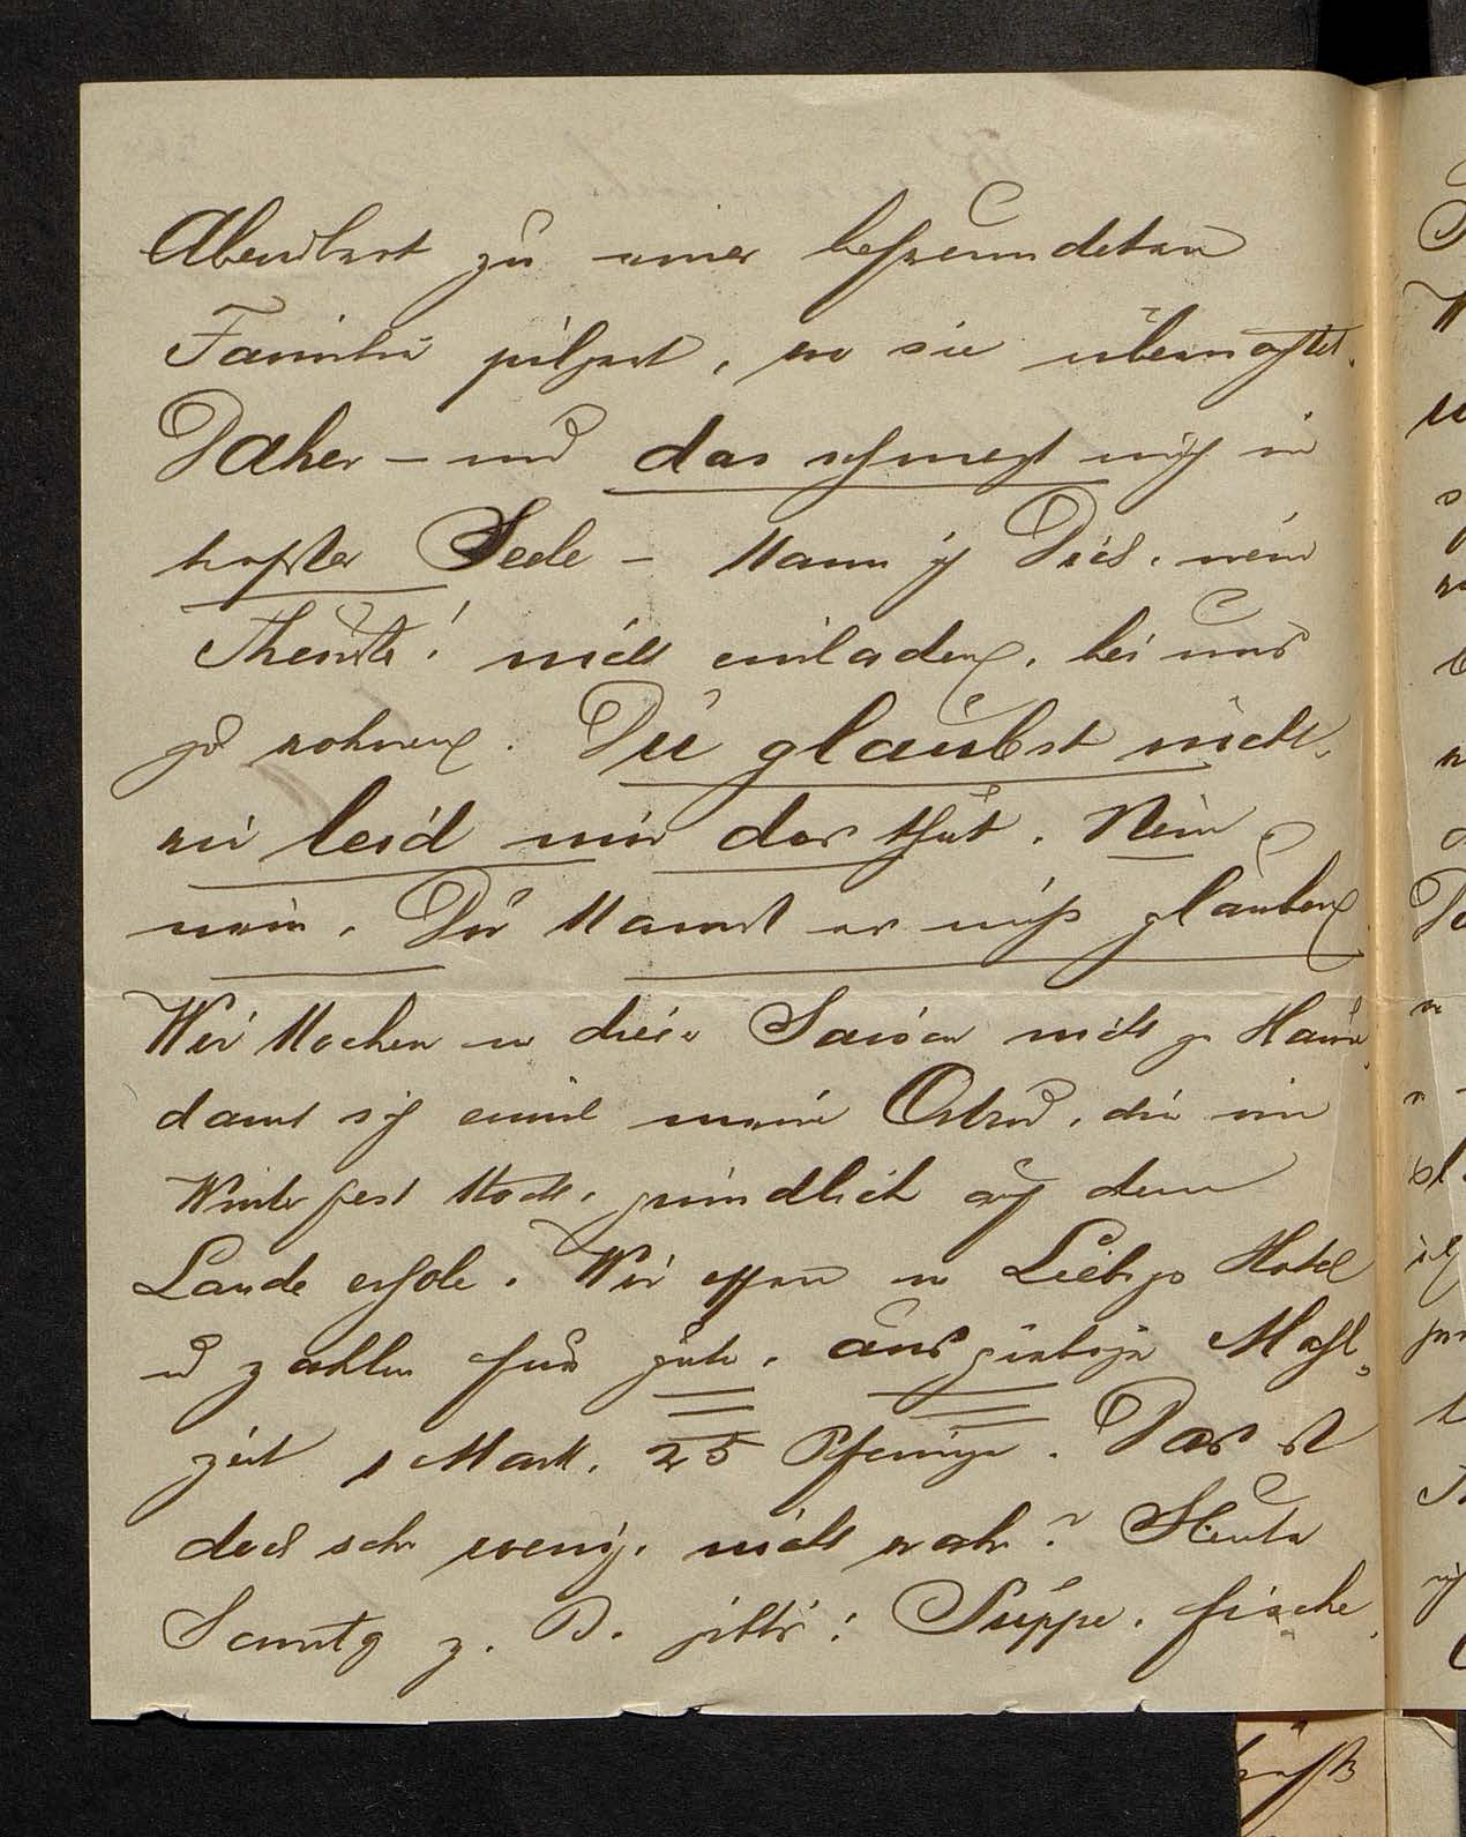 Abendbrot zu einer befreundeten
Familie pilgert, wo sie übernachtet.
Daher – und das schmerzt mich in
tiefster Seele – kann ich Dich, mein
Theurste! nicht einladen, bei uns
zu wohnen. Du glaubst nicht,
wie leid mir das thut. Nein
nein, Du kannst es mir glauben
Wir kochen in dieser Saison nicht zu Hause,
damit sich einmal meine, die im
Winter fest kocht, gründlich auf dem
Lande erhole. Wir essen in Hotel
u zahlen für gute, ausgiebige Mahl-
zeit 1 Mark, 25 Pfennige. Das ist
doch sehr wenig, nicht wahr? Heute
Sonntg z. B. gibts: Suppe, Fische,